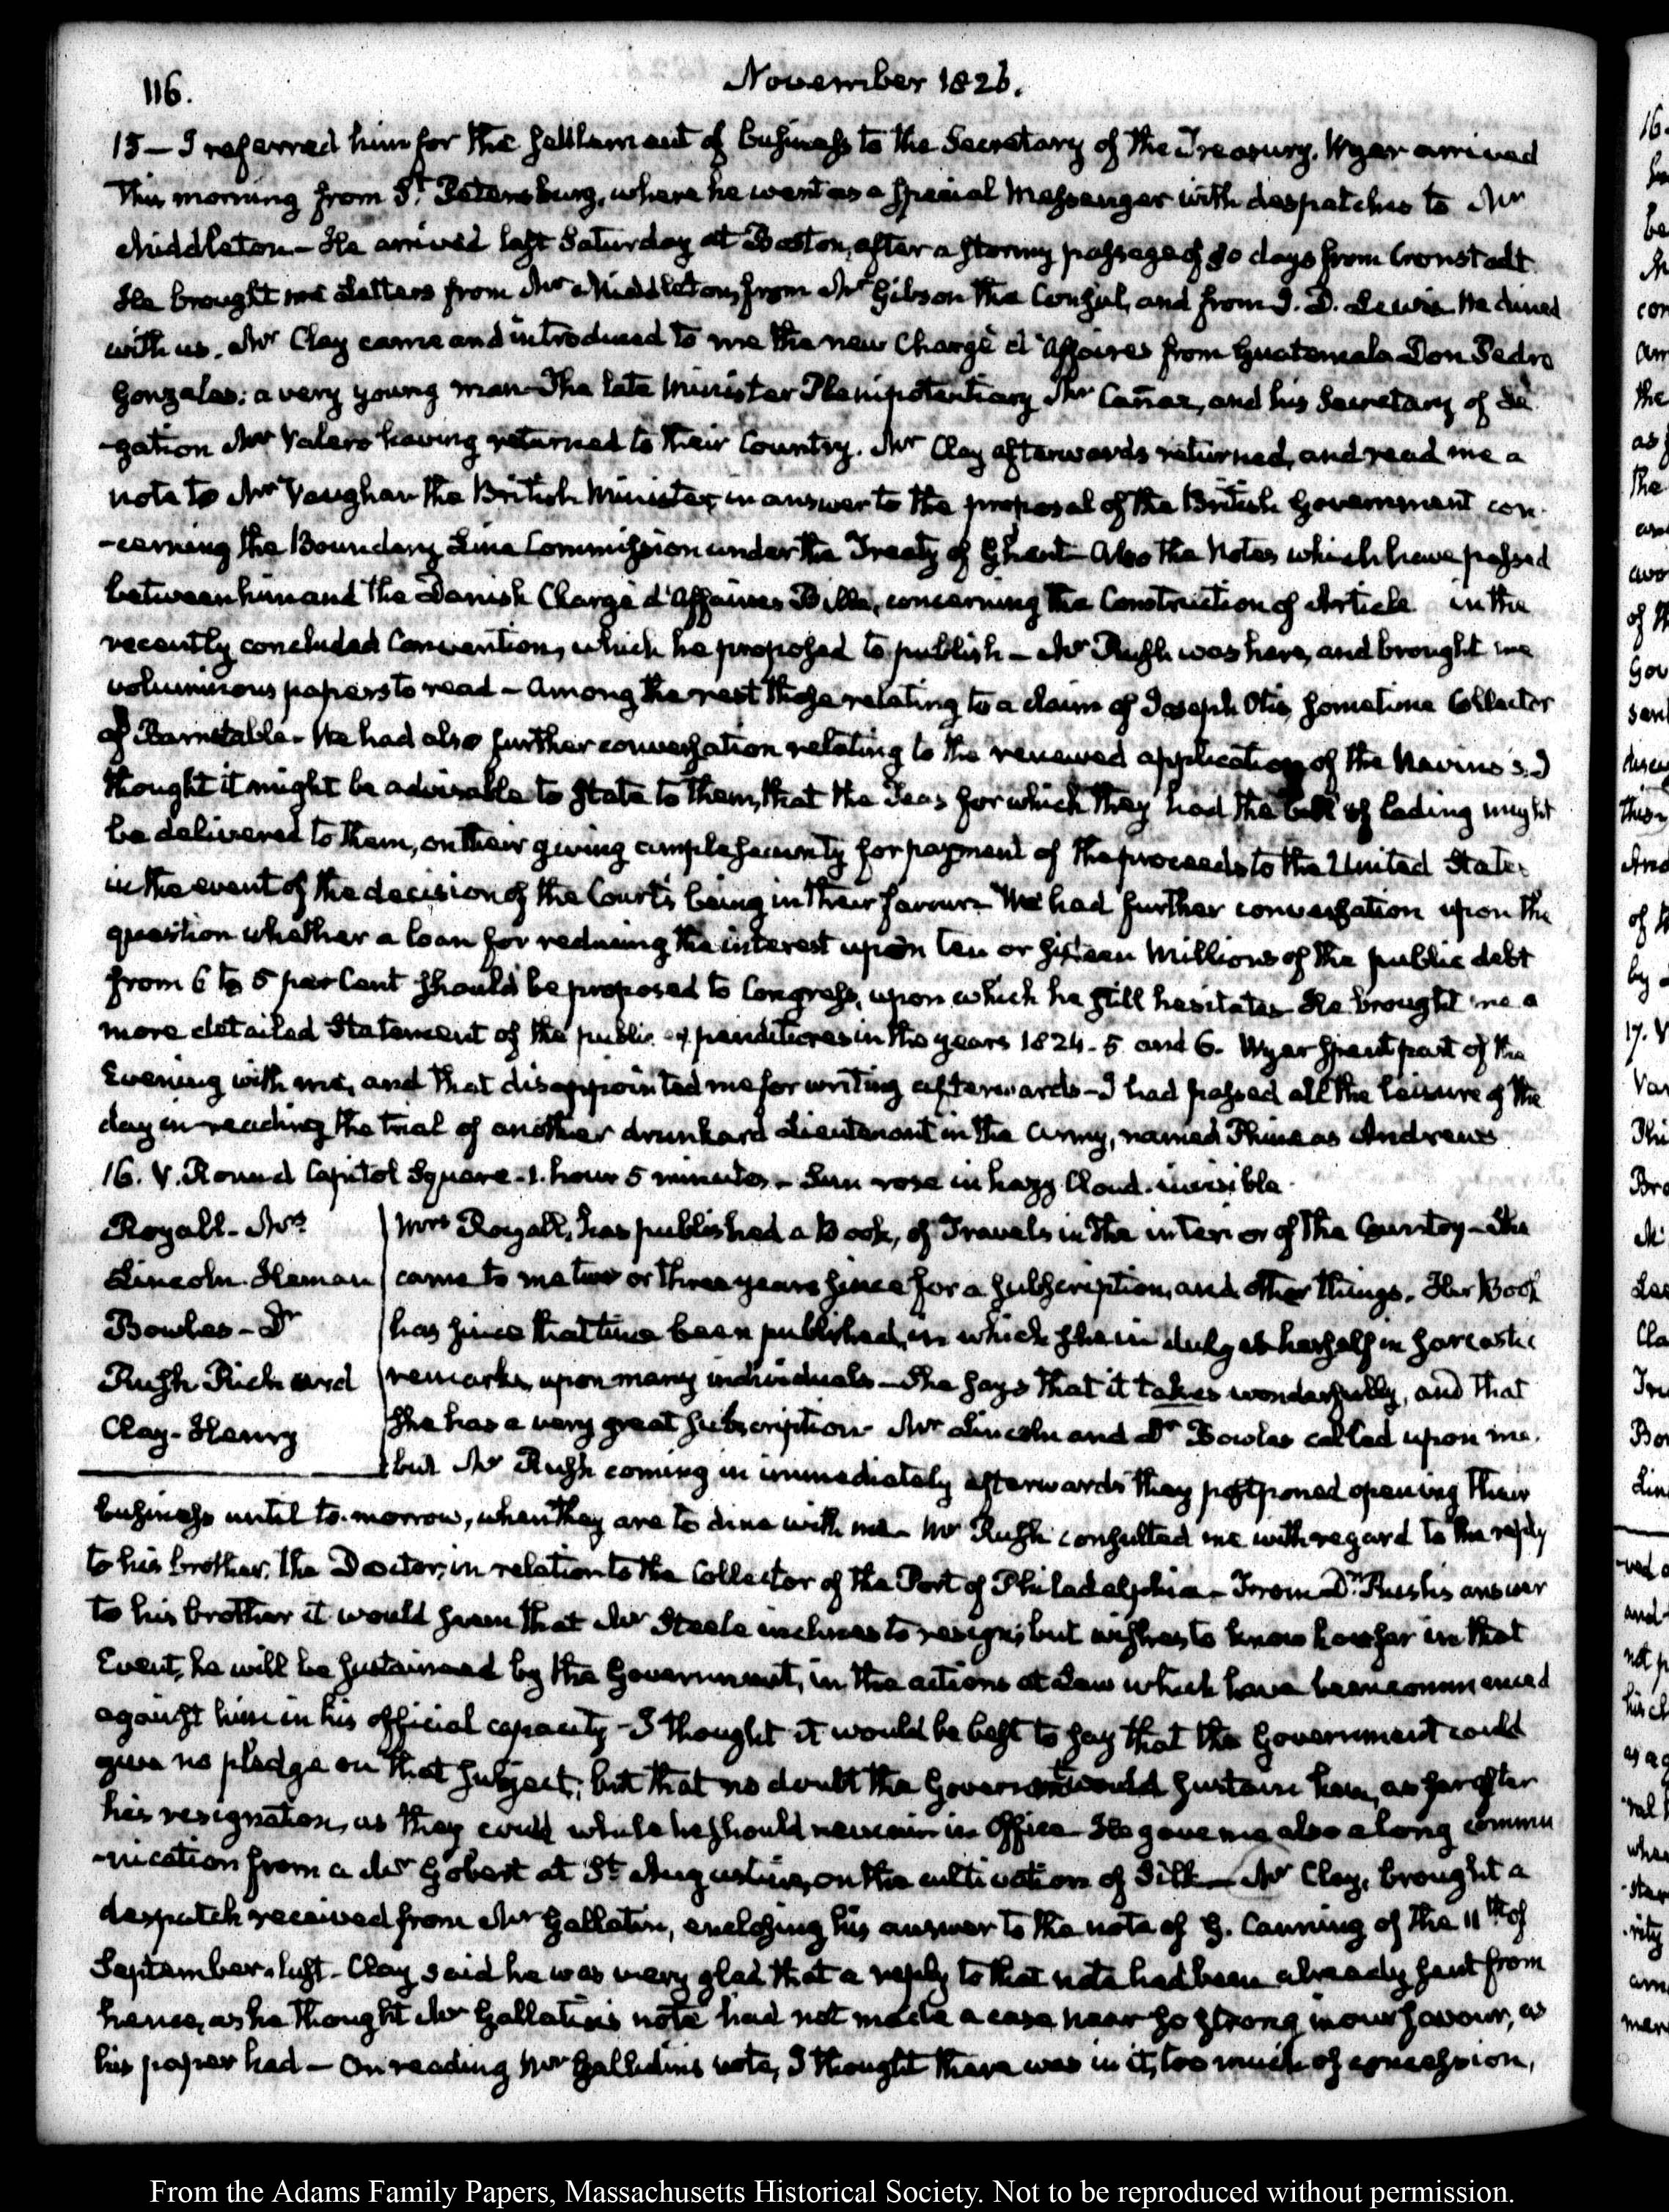 116.
November 1826.
15 — I referred him for the settlement of business to the Secretary of the Treasury. Wyer arrived
this morning from St. Petersburg, where he went as a special Messenger with despatches to Mr
Middleton — He arrived last Saturday at Boston, after a stormy passage of 80 days from Cronstadt
He brought me Letters from Mr Middleton, from Mr Gibson the Consul, and from J. D. Lewis. He dined
with us. Mr Clay came and introduced to me the new Chargé d'Affaires from Guatemala Don Pedro
Gonzales: a very young man — The late Minister Plenipotentiary Mr Cañaz, and his Secretary of Le
-gation Mr Valero having returned to their Country. Mr Clay afterwards returned, and read me a
note to Mr Vaughan the British Minister, in answer to the proposal of the British Government con-
-cerning the Boundary Line Commission under the Treaty of Ghent — Also the Notes which have passed
between him and the Danish Chargé d'Affaires Bille, concerning the Construction of Article in the
recently concluded Convention, which he proposed to publish — Mr Rush was here, and brought me
voluminous papers to read — Among the rest those relating to a claim of Joseph Otis sometime Collector
of Barnstable. We had also further conversation relating to the renewed application of the Nevins's. I
thought it might be advisable to state to them, that the Teas for which they had the bill of lading might
be delivered to them, on their giving ample security for payment of the proceeds to the United States
in the event of the decision of the Courts being in their favour — We had further conversation upon the
question whether a loan for reducing the interest upon ten or fifteen Millions of the public debt
from 6 to 5 per Cent should be proposed to Congress, upon which he still hesitates — He brought me a
more detailed Statement of the public expenditures in the years 1824. 5 and 6. Wyer spent part of the
Evening with me, and that disappointed me for writing afterwards — I had passed all the leisure of the
day in reading the trial of another drunkard Lieutenant in the Army, named Phineas Andrews
16. V. Round Capitol Square. 1. hour 5 minutes. Sun rose in hazy Cloud. invisible.
Royall — Mrs
Lincoln Heman
Bowles — Dr
Rush Richard
Clay — Henry
Mrs Royall, has published a Book, of Travels in the interior of the Country — She
came to me two or three years since for a subscription, and other things. Her Book
has since that time been published, in which she indulges herself in sarcastic
remarks, upon many individuals — She says that it takes wonderfully, and that
she has a very great subscription — Mr Lincoln and Dr Bowles called upon me.
but Mr Rush coming in immediately afterwards they postponed opening their
business until to-morrow, when they are to dine with me — Mr Rush consulted me with regard to the reply
to his brother, the Doctor, in relation to the Collector of the Port of Philadelphia — From Dr Rush's answer
to his brother it would seem that Mr Steele inclines to resign; but wishes to know how far in that
Event, he will be sustained by the Government, in the actions at Law which have been commenced
against him in his official capacity — I thought it would be best to say that the Government could
give no pledge on that subject; but that no doubt the Government would sustain him, as far after
his resignation, as they could while he should remain in Office — He gave me also a long commu
-nication from a Mr Gobert at St. Augustine, on the cultivation of Silk — Mr Clay, brought a
despatch received from Mr Gallatin, enclosing his answer to the note of G. Canning of the 11th of
September last — Clay said he was very glad that a reply to that note had been already sent from
hence, as he thought Mr Gallatin's note had not made a case near so strong in our favour, as
his paper had — On reading Mr Gallatin's note, I thought there was in it, too much of concession,
From the Adams Family Papers, Massachusetts Historical Society. Not to be reproduced without permission.